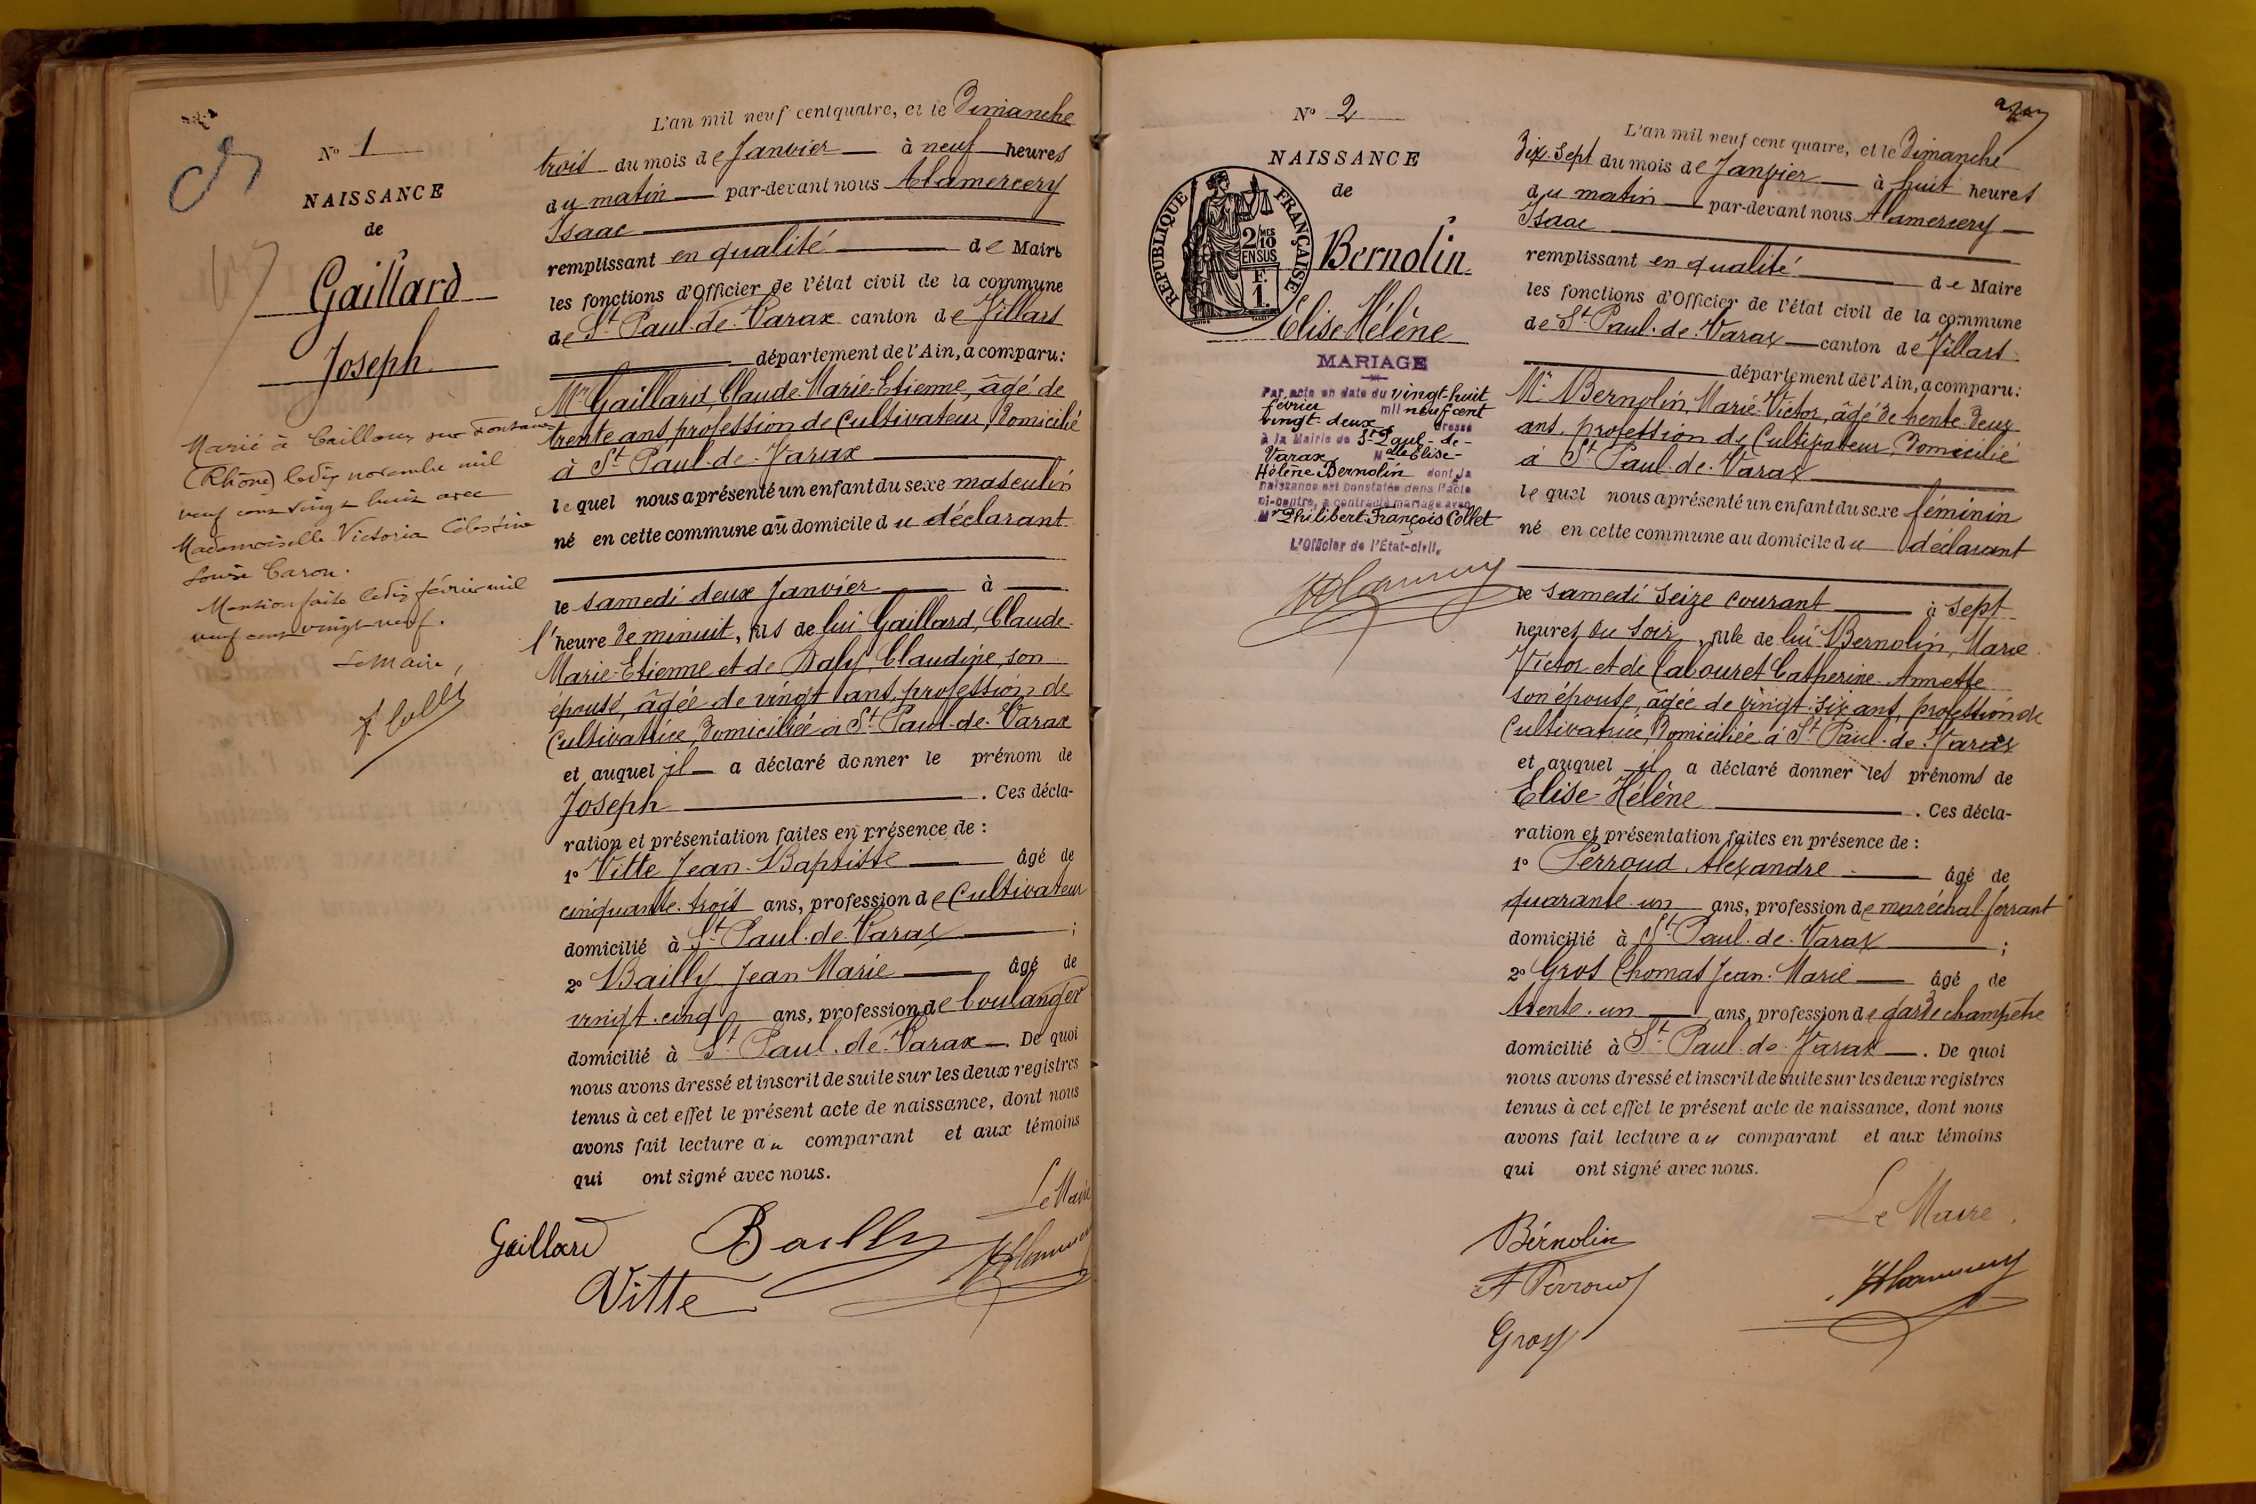 N° 1
NAISSANCE
de
Gaillard
Joseph
Marié à Cailloux sur Fontaines
(Rhône) le dix novembre mil
neuf cent vingt huit avec
Mademoiselle Victoria Célestine
Louise Caron.
Mention faite le dix février mil
neuf cent vingt neuf.
Le Maire,
L'an mil neuf cent quatre, et le Dimanche
trois du mois de Janvier à neuf heures
du matin par-devant nous Alamercery
Isaac
remplissant en qualité de Maire
les fonctions d'Officier de l'état civil de la commune
de St Paul-de-Varax canton de Villars
département de l'Ain, a comparu:
Mr Gaillard, Claude-Marie-Etienne, âgé de
trente ans, profession de cultivateur, Domicilié
à St Paul-de-Varax
lequel nous a présenté un enfant du sexe masculin
né en cette commune au domicile du déclarant
le samedi deux Janvier à
l'heure de minuit, fils de lui Gaillard, Claude-
Marie-Etienne et de Daly, Claudine, son
épouse, âgée de vingt ans, profession de
Cultivatrice, Domiciliée à St Paul-de-Varax
et auquel il a déclaré donner le prénom de
Joseph . Ces décla-
ration et présentation faites en présence de :
1° Vitte Jean-Baptiste âgé de
cinquante-trois ans, profession de Cultivateur
domicilié à St Paul-de-Varax ;
2° Bailly Jean Marie âgé de
vingt-cinq ans, profession de boulanger
domicilié à St Paul-de-Varax . De quoi
nous avons dressé et inscrit de suite sur les deux registres
tenus à cet effet le présent acte de naissance, dont nous
avons fait lecture au comparant et aux témoins
qui ont signé avec nous.
Le Maire
Gaillard Bailly
Vitte
N° 2
NAISSANCE
de
RÉPUBLIQUE FRANÇAISE
2/10 MES
EN SUS
F.
1.
Bernolin
Elise Hélène
MARIAGE
Par acte en date du vingt-huit
février mil neuf cent
vingt-deux, dressé
à la Mairie de St Paul-de-
Varax Melle Elise-
Hélène Bernolin dont la
naissance est constatée dans l'acte
ci-contre, a contracté mariage avec
Mr Philibert François Collet
L'Officier de l'État-civil,
L'an mil neuf cent quatre, et le Dimanche
Dix-Sept du mois de Janvier à huit heures
du matin par-devant nous Alamercery
Isaac
remplissant en qualité de Maire
les fonctions d'Officier de l'état civil de la commune
de St Paul-de-Varax canton de Villars
département de l'Ain, a comparu:
Mr Bernolin, Marie-Victor, âgé de trente-Deux
ans, profession de Cultivateur, Domicilié
à St Paul-de-Varax
lequel nous a présenté un enfant du sexe féminin
né en cette commune au domicile du déclarant
le samedi seize courant à sept
heures du soir, fille de lui Bernolin, Marie
Victor et de Cabouret Catherine-Annette
son épouse, âgée de vingt-six ans, profession de
Cultivatrice, Domiciliée à St Paul-de-Varax
et auquel il a déclaré donner les prénoms de
Elise-Hélène . Ces décla-
ration et présentation faites en présence de :
1° Perroud Alexandre âgé de
quarante-un ans, profession de maréchal-ferrant
domicilié à St Paul-de-Varax ;
2° Gros Thomas Jean-Marie âgé de
trente-un ans, profession de garde champêtre
domicilié à St Paul-de-Varax . De quoi
nous avons dressé et inscrit de suite sur les deux registres
tenus à cet effet le présent acte de naissance, dont nous
avons fait lecture au comparant et aux témoins
qui ont signé avec nous.
Le Maire,
Bérnolin
A Perroud
Gros